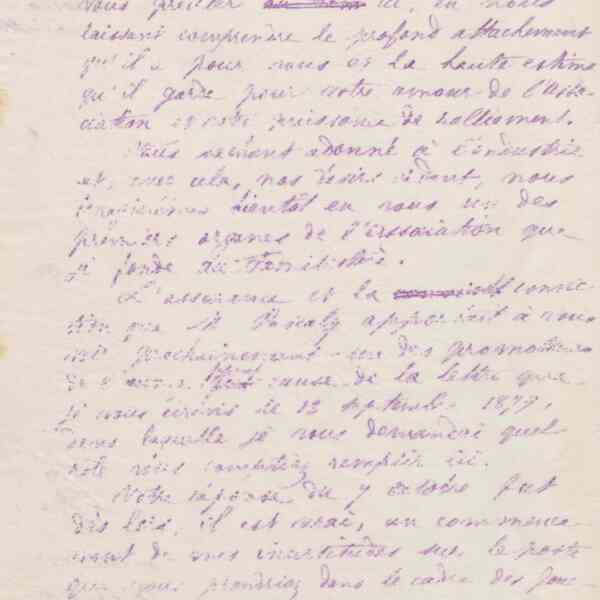 vous prêter ici, en nous
laissant comprendre le profond attachement
qu'il a pour vous et la haute estime
qu'il garde pour votre amour de l'Asso-
ciation et votre puissance de ralliement.
Vous sachant adonné à l'industrie
et, avec cela, nos désirs aidant, nous
bientôt en vous un des
premiers organes de l'association que
je fonde au Familistère.
L'assurance et la convic-
tion que M Pascaly apporterait à vous
voir prochainement un des promoteurs
de l'œuvre cause de la lettre que
je vous écrivis le 12 septembre 1877,
dans laquelle je vous demandai quel
rôle vous comptiez remplir ici.
Votre réponse du 7 octobre fut
dès lors, il est vrai, un commence-
ment de mes incertitudes sur le poste
que vous prendriez dans le cadre des fonc-